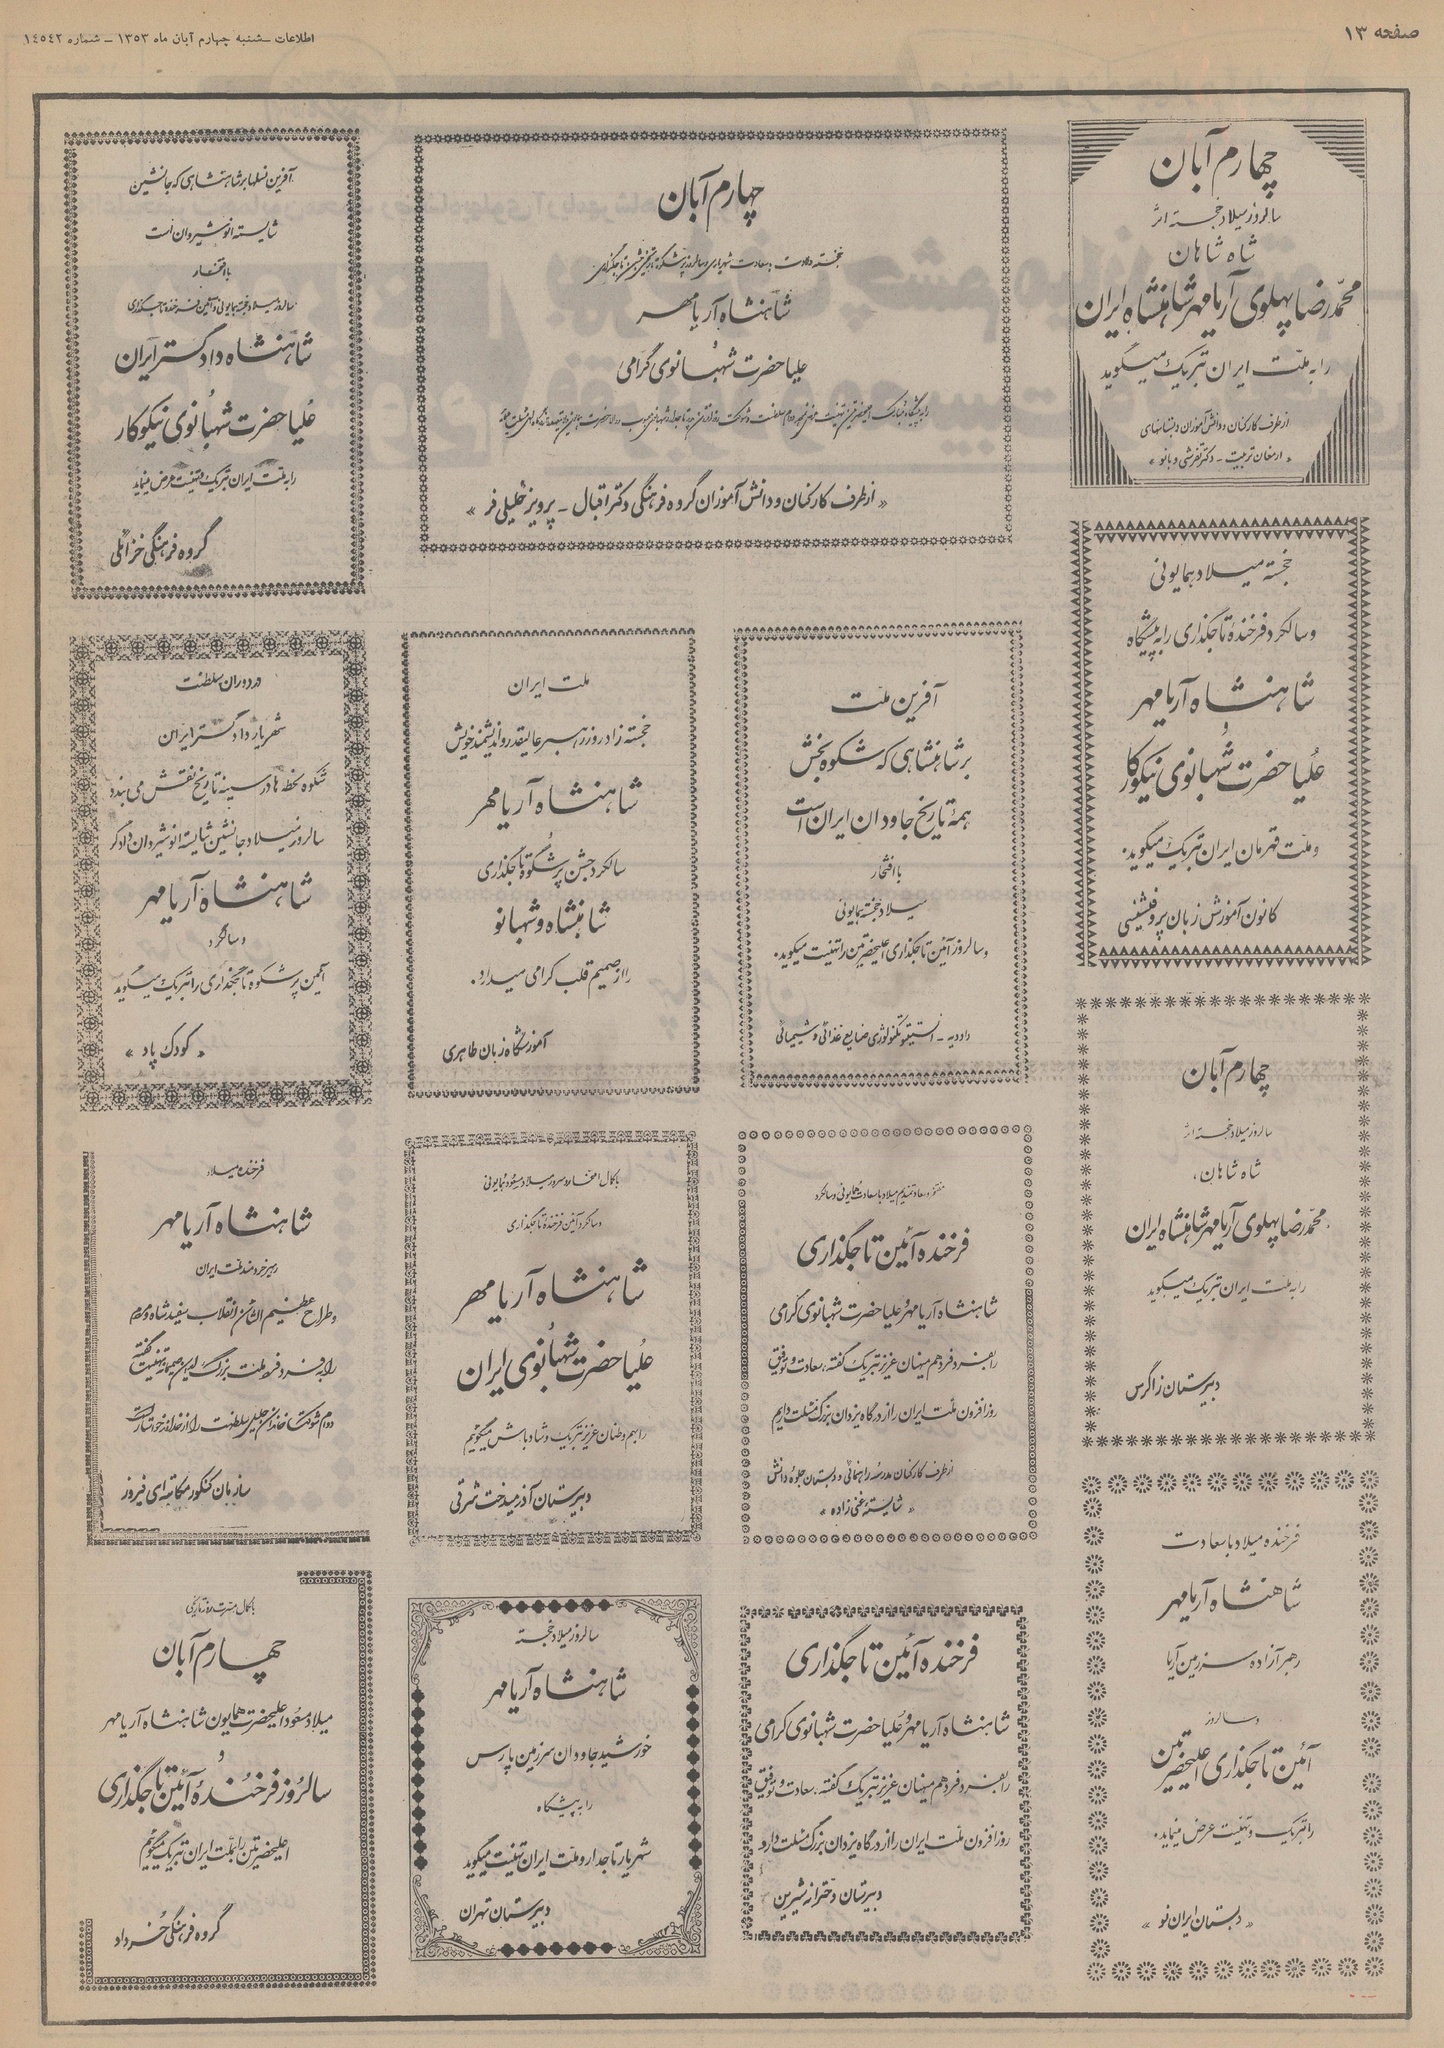 صفحه ۱۳
اطلاعات ـ شنبه چهارم آبان ماه ۱۳۵۳ ـ شماره ۱۴۵۴۲
چهارم آبان
سالروز میلاد خجسته اثر
شاه شاهان
محمّد رضا پهلوی آریامهر شاهنشاه ایران
را به ملّت ایران تبریک میگوید
از طرف کارکنان و دانش‌آموزان دبستانهای
« ارمغان تربیت ـ دکتر تفرشی و بانو »
چهارم آبان
شاهنشاه آریامهر
و
علیاحضرت شهبانوی گرامی
« از طرف کارکنان و دانش آموزان گروه فرهنگی دکتر اقبال ـ پرویز خلیلی فر »
آفرین نسلها بر شاهنشاهی که جانشین
شایسته انوشیروان است
با افتخار
سالروز میلاد خجسته همایونی و آئین فرخنده تاجگذاری
شاهنشاه دادگستر ایران
و
علیاحضرت شهبانوی نیکوکار
را به ملت ایران تبریک و تهنیت عرض مینماید
گروه فرهنگی خزائلی
خجسته میلاد همایونی
و سالگرد فرخندهٔ تاجگذاری را به پیشگاه
شاهنشاه آریامهر
و
علیاحضرت شهبانوی نیکوکار
و ملّت قهرمان ایران تبریک میگوید.
کانون آموزش زبان پروفشینسی
آفرین ملّت
بر شاهنشاهی که شکوه بخش
همهٔ تاریخ جاودان ایران است
با افتخار
میلاد خجسته همایونی
و سالروز آئین تاجگذاری اعلیحضرتین را تهنیت میگوید.
دادیه ـ انستیتو تکنولوژی صنایع غذائی و شیمیائی
ملت ایران
خجسته زادروز رهبر عالیقدر و اندیشمند خویش
شاهنشاه آریامهر
و
سالگرد جشن پر شکوه تاجگذاری
شاهنشاه و شهبانو
را از صمیم قلب گرامی میدارد.
آموزشگاه زبان طاهری
در دوران سلطنت
شهریار دادگستر ایران
شکوه لحظه‌ها در سینه تاریخ نقش می بندد
سالروز میلاد جانشین شایسته انوشیروان دادگر
شاهنشاه آریامهر
و سالگرد
آئین پر شکوه تاجگذاری را تبریک میگوید
« کودک پاد »
چهارم آبان
سالروز میلاد خجسته اثر
شاه شاهان،
محمّد رضا پهلوی آریامهر شاهنشاه ایران
را به ملت ایران تبریک میگوید
دبیرستان زاگرس
فرخنده آئین تاجگذاری
شاهنشاه آریامهر و علیاحضرت شهبانوی گرامی
را بفرد فرد هم میهنان عزیز تبریک گفته، سعادت و توفیق
روزافزون ملّت ایران را از درگاه یزدان بزرگ مسئلت داریم
از طرف کارکنان مدرسه راهنمائی و دبستان جلوه دانش
« شایسته غنی زاده »
با کمال افتخار و سرور میلاد مسعود همایونی
و سالگرد آئین فرخنده تاجگذاری
شاهنشاه آریامهر
و
علیاحضرت شهبانوی ایران
را بهم وطنان عزیز تبریک و شادباش میگوئیم
دبیرستان آذرمیدخت شرقی
فرخنده میلاد
شاهنشاه آریامهر
رهبر خردمند ملت ایران
و طراح عظیم الشأن انقلاب سفید شاه و مردم
را به فرد فرد ملت بزرگ ایران صمیمانه تهنیت گفته
سازمان کنکور مکاتبه‌ای فیروز
فرخنده میلاد با سعادت
شاهنشاه آریامهر
رهبر آزاده سرزمین آریا
و سالروز
آئین تاجگذاری اعلیحضرتین
را تبریک و تهنیت عرض مینماید.
« دبستان ایران نو »
فرخنده آئین تاجگذاری
شاهنشاه آریامهر و علیاحضرت شهبانوی گرامی
را بفرد فرد هم میهنان عزیز تبریک گفته. سعادت و توفیق
روزافزون ملّت ایران را از درگاه یزدان بزرگ مسئلت دارد
دبیرستان دخترانه شیرین
سالروز میلاد خجسته
شاهنشاه آریامهر
خورشید جاودان سرزمین پارس
را به پیشگاه
شهریار تاجدار و ملت ایران تهنیت میگوید
دبیرستان تهران
با کمال مسرت روز تاریخی
چهارم آبان
میلاد مسعود اعلیحضرت همایون شاهنشاه آریامهر
و
سالروز فرخندهٔ آئین تاجگذاری
اعلیحضرتین را بملّت ایران تبریک میگوئیم
گروه فرهنگی خرداد